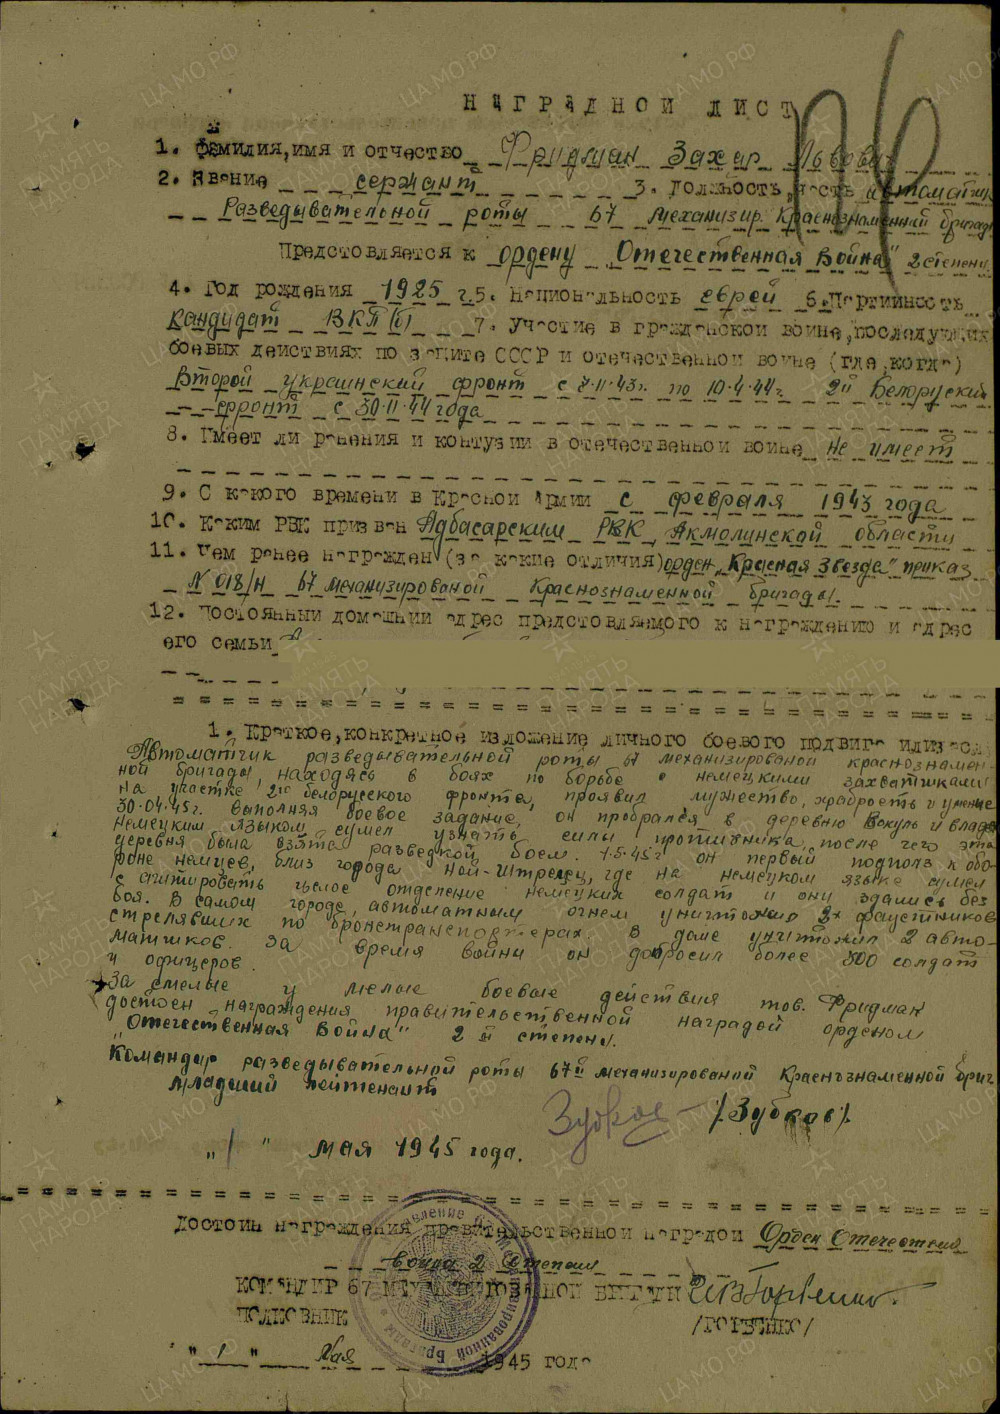 НАГРАДНОЙ ЛИСТ
1. Фамилия, имя и отчество Фридман Захар Львович
2. Звание сержант 3. Должность, часть автоматчик
Разведывательной роты 67 механизир. Краснознаменной бригады
Предстовляется к ордену Отечественная Война" 2 степени
4. Год рождения 1925 г. 5. Национольность еврей 6. Портийность
Кандидат ВКП(б) 7. Учостие в гражданской войне, последующих
боевых действиях по защите СССР и отечественной войне (где, когда)
Второй украинский фронт с 7.11.43г. по 10.4.44г. 2й Белоруский
фронт с 30.11.44 года
8. Имеет ли ранения и контузии в отечественной войне Не имеет
9. С какого времени в Красной Армии с февраля 1943 года
10. Каким РВК призван Адбасарским РВК Акмолинской области
11. Чем ранее награжден (за какие отличия) орден „Красная Звезда" приказ
N 018/н 67 механизированой Краснознаменной бригады.
12. Постоянный домашний адрес предстовляемого к награждению и адрес
его семьи
1. Краткое, конкретное изложение личного боевого подвига или
Автоматчик разведывательной роты 67 механизированой краснознамен-
ной бригады, находясь в боях по борьбе с немецкими захватчиками
на участке 2го белорусского фронта, проявил мужество, храбрость и умение
30.04.45г. выполняя боевое задание, он пробрался в деревню и владея
немецким языком сумел узнать силы противника, после чего эта
деревня была взята разведкой боем. 1.5.45г он первый подполз к обо-
роне немцев, близ города Ной-Штрелец, где на немецком языке сумел
с агитировать целое отделение немецких солдат и они здались без
боя. В самом городе, автоматным огнем уничтожил 2х фаустников
стрелявших по бронетранспортерах. В доме уничтожил 2 авто-
матчиков. За время войны он более 300 солдат
и офицеров.
За смелые умелые боевые действия тов. Фридман
достоен награждения правительственной наградой орденом
„Отечественная Война" 2й степени.
Командир разведывательной роты 67й механизированой Краснъзнаменной бриг
Младший лейтенант
Зубков /Зубков/.
„1" мая 1945 года.
Достоин награждения правительственной наградой Орден Отечествен
война 2 степени
КОМАНДИР 67 МЕХАНИЗИРОВАННОЙ БРИГАДЫ
ПОЛКОВНИК /ГОРБЕНКО/
"1" Мая 1945 года
ПАМЯТЬ НАРОДА
ЦА МО РФ